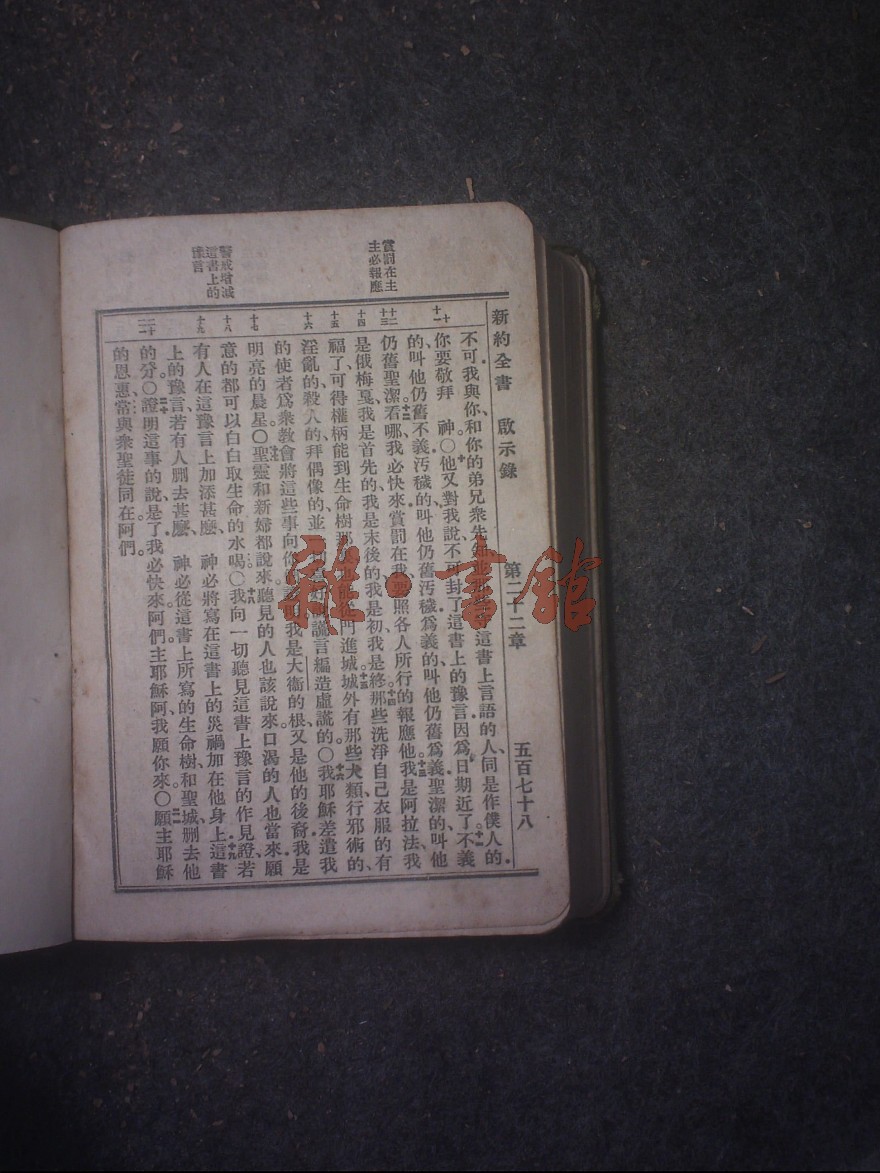 新約全書 啟示錄 第二十二章 五百七十八
賞罰在主
主必報應
警戒增減
這書上的
豫言
十
十一
十二
十三
十四
十五
十六
十七
十八
十九
二十
二一
不可、我與你、和你的弟兄衆先知、並那 這書上言語的人、同是作僕人的、
你要敬拜 神。〇十他又對我說、不可封了這書上的豫言、因爲日期近了。十一不義
的、叫他仍舊不義、汚穢的、叫他仍舊汚穢、爲義的、叫他仍舊爲義、聖潔的、叫他
仍舊聖潔。十二看哪、我必快來、賞罰在我、要照各人所行的報應他。十三我是阿拉法、我
是俄梅戛、我是首先的、我是末後的、我是初、我是終。十四那些洗淨自己衣服的有
福了、可得權柄能到生命樹那 門進城。十五城外有那些犬類、行邪術的、
淫亂的、殺人的、拜偶像的、並 謊言編造虛謊的。〇十六我耶穌差遣我
的使者爲衆教會將這些事向你 我是大衞的根、又是他的後裔、我是
明亮的晨星。〇十七聖靈和新婦都說來、聽見的人也該說來、口渴的人也當來、願
意的都可以白白取生命的水喝。〇十八我向一切聽見這書上豫言的作見證、若
有人在這豫言上加添甚麽、 神必將寫在這書上的災禍加在他身上、十九這書
上的豫言、若有人刪去甚麽、 神必從這書上所寫的生命樹、和聖城、刪去他
的分。〇二十證明這事的說、是了、我必快來。阿們。主耶穌阿、我願你來。〇二一願主耶穌
的恩惠、常與衆聖徒同在。阿們。
雜·書館